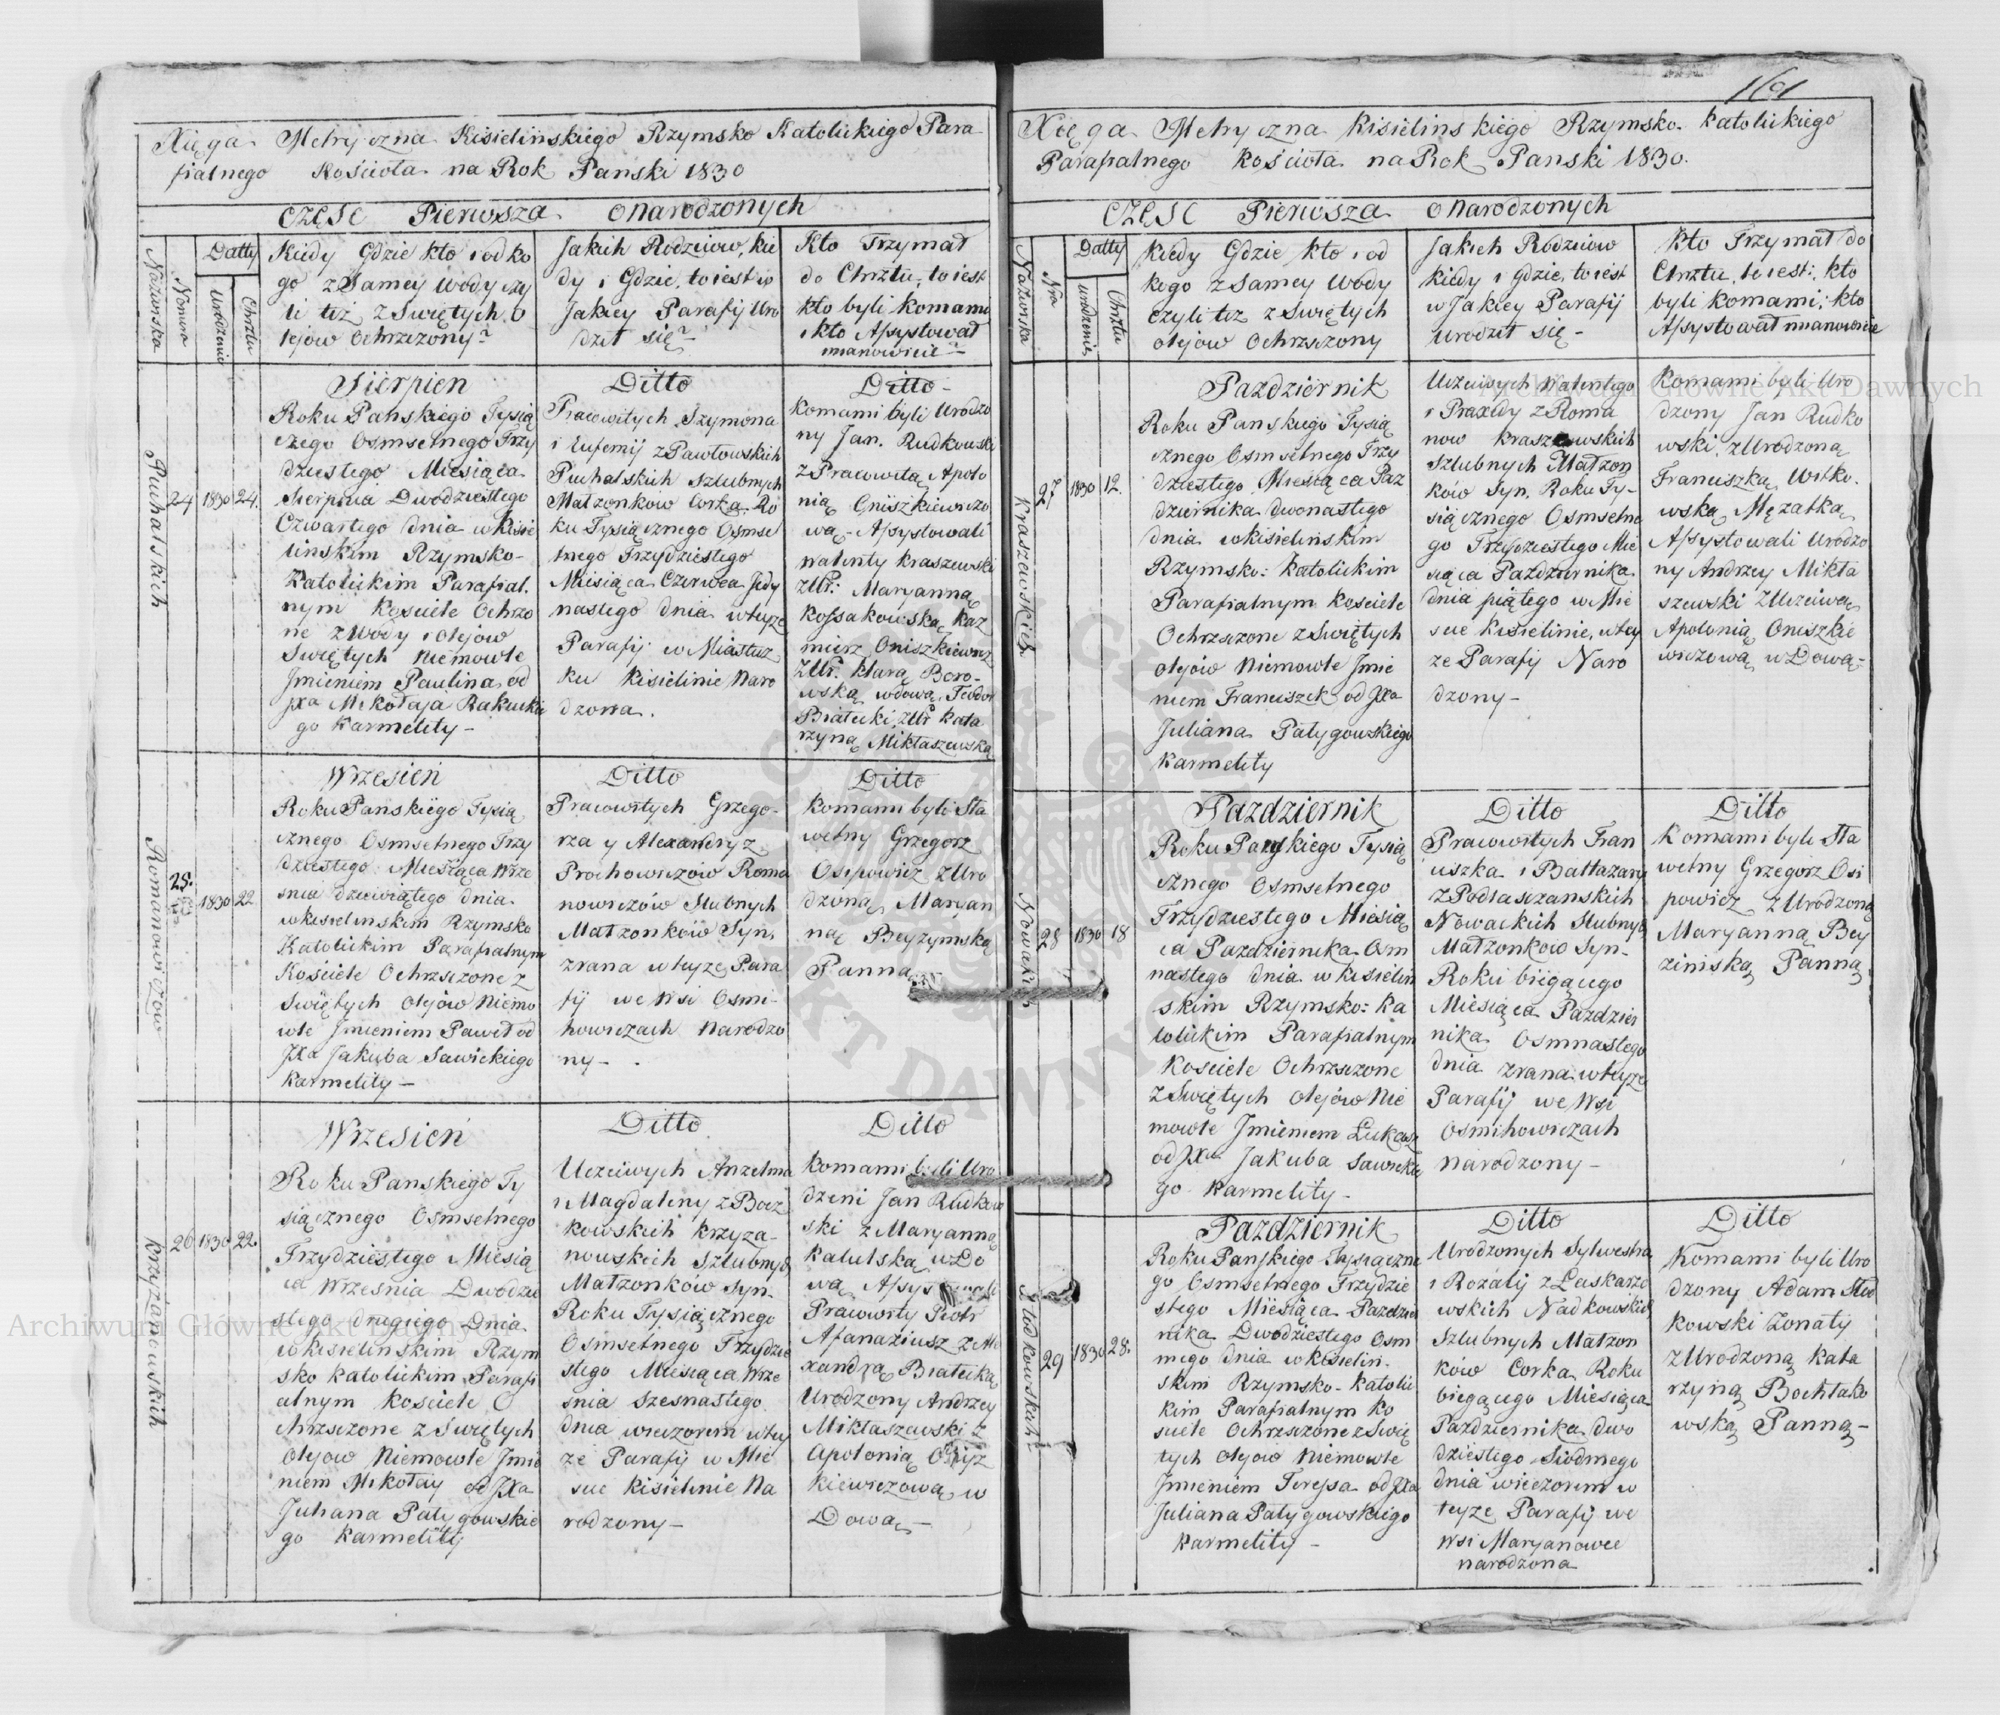 Xięga Metryczna Kisielińskiego Rzymsko Katolickiego Para
fialnego Kościoła na Rok Panski 1830
CZĘSC Pierwsza o Narodzonych
Nazwiska
Numera
Datty
Urodzenia
Chrztu
Kiedy Gdzie kto i od ko
go z Samey Wody czy
li też z Swiętych O
lejów Ochrzczony?
Jakich Rodziców, kie
dy i Gdzie, to iest w
Jakiey Parafij Uro
dził się?
Kto Trzymał
do Chrztu, to iest
kto byli Komami
i kto Assystował
mianowicie?
Puhalskich
24
1830
24.
Sierpien
Roku Panskiego Tysią
cznego Osmsetnego Trzy
dziestego Miesiąca
Sierpnia Dwodziestego
Czwartego dnia w Kisie
linskim Rzymsko-
Katolickim Parafial.
nym Kosciele Ochrzo
ne z Wody i olejów
Swiętych Niemowle
Jmieniem Paulina od
JXa Mikołaja Rakuckie
go Karmelity –
Ditto
Pracowitych Szymona
i Eufemij z Pawłowskich
Puhalskich Szlubnych
Małzonków Corka. Ro
ku Tysiącznego Osmse
tnego Trzydziestego
Miesiąca Czerwca Jedy
nastego dnia w teyze
Parafij w Miastecz
ku Kisielinie Naro
dzona.
Ditto –
Komami byli Urodzo
ny Jan Rudkowski
z Pracowitą Apolo
nią Gniszkiewiczo
wą – Assystowali
Walenty Kraszewski
z Ur. Maryanną
Kossakowską Kaz
mierz Oniszkiewicz
z Ur. Klarą Boro-
wską wdową, Teodor
Białecki z Ur. Kata
rzyną Miktaszewską
Romanowiczow
25.
1830
22
Wrzesień
Roku Panskiego Tysią
cznego Osmsetnego Trzy
dziestego Miesiąca Wrze
snia dziewiątego dnia
w Kisielinskim Rzymsko
Katolickim Parafialnym
Kościele Ochrzczone z
Swiętych Olejów Niemo
wle Jmieniem Paweł od
JXa Jakuba Sawickiego
Karmelity –
Ditto
Pracowitych Grzego-
rza y Alexandry z
Prochowiczów Roma
nowiczów Slubnych
Małzonków Syn,
zrana w teyze Para
fij we Wsi Osmi-
howiczach Narodzo
ny – .
Ditto
Komami byli Sła
wetny Grzegorz
Osipowicz z Uro
dzoną Maryan
ną Beyzymską
Panną
Krzyżanowskich
26
1830
22.
Wrzesień
Roku Panskiego Ty
siącznego Osmsetnego
Trzydziestego Miesią
ca Wrzesnia Dwodzie
stego drugiego Dnia
w Kisielinskim Rzym
sko Katolickim Parafi
alnym Kosciele O
chrzczone z Swiętych
Olejow Niemowle Jmie
niem Mikołay od JXa
Juliana Patygowskie
go Karmelity
Ditto
Uczciwych Anzelma
i Magdaleny z Bocz
kowskich Krzyza-
nowskich Szlubnych
Małzonków Syn.
Roku Tysiącznego
Osmsetnego Trzydzie
stego Miesiąca Wrze
snia Szesnastego
dnia wieczorem w tey
ze Parafij w Mie
scie Kisielinie Na
rodzony –
Ditto
Komami byli Uro
dzeni Jan Rudkow
ski z Maryanną
Kalulską wDo
wą, Assystowali
Pracowity Piotr
Afanaziusz z Ale
xandrą Białecką
Urodzony Andrzey
Miktaszewski z
Apolonią Onisz
kiewiczową w
Dową –
161
Xięga Metryczna Kisielinskiego Rzymsko. Katolickiego
Parafialnego Kościoła na Rok Panski 1830.
CZĘSC Pierwsza o Narodzonych
Nazwiska
Nra
Datty
Urodzenia
Chrztu
Kiedy Gdzie kto i od
kogo z Samey Wody
czyli tez z Swiętych
olejów Ochrzczony
Jakich Rodziców
kiedy i gdzie, to iest
w Jakiey Parafij
Urodził się –
Kto Trzymał do
Chrztu, to iest: kto
byli komami; kto
Assystował mianowicie
Kraszewskich
27
1830
12.
Pazdziernik
Roku Panskiego Tysią
cznego Osmsetnego Trzy
dziestego Miesiąca Paz
dziernika dwonastego
dnia w Kisielinskim
Rzymsko: Katolickim
Parafialnym Kosciele
Ochrzczone z Swiętych
olejów Niemowle Jmie
niem Franciszek od JXa
Juliana Patygowskiego
Karmelity
Uczciwych Walentego
i Praxedy z Roma
now Kraszewskich
Szlubnych Małzon
ków Syn. Roku Ty-
siącznego Osmsetne
go Trzydziestego Mie
siąca Pazdziernika
dnia piątego w Mie
scie Kisielinie, w tey
ze Parafij Naro
dzony –
Komami byli Uro
dzony Jan Rudko
wski z Urodzoną
Franciszką Witko.
wską Mężatką
Assystowali Urodzo
ny Andrzey Mikta
szewski z Uczciwą
Apolonią Oniszkie
wiczową wDową –
Nowackich
28
1830
18
Pazdziernik
Roku Panskiego Tysią
cznego Osmsetnego
Trzydziestego Miesią
ca Pazdziernika Osm
nastego dnia w Kisielin
skim Rzymsko: Ka
tolickim Parafialnym
Kosciele Ochrzczone
z Swiętych Olejów Nie
mowle Jmieniem Łukasz
od JXa Jakuba Sawickie
go Karmelity –
Ditto
Pracowitych Fran
ciszka i Baltazary
z Podlasczanskich
Nowackich Slubnych
Małzonków Syn –
Roku bieżącego
Miesiąca Pazdzier
nika Osmnastego
dnia zrana w teyze
Parafij we Wsi
Osmihowiczach
narodzony –
Ditto
Komami byli Sła
wetny Grzegorz Osi
powicz z Urodzoną
Maryanną Bey
zimską Panną
29
1830
28.
Pazdziernik
Roku Panskiego Tysiączne
go Osmsetnego Trzydzie
stego Miesiąca Pazdzier
nika Dwodziestego Osm
mego dnia w Kisielin-
skim Rzymsko-Katolic
kim Parafialnym Ko
sciele Ochrzczone z Swię
tych Olejów Niemowle
Jmieniem Teressa od JXa
Juliana Patygowskiego
Karmelity –
Ditto
Urodzonych Sylwestra
i Rozalij z Laskarzo
wskich Nadkowskich
Szlubnych Małzon
ków Corka Roku
bieżącego Miesiąca
Pazdziernika dwo
dziestego Siodmego
dnia wieczorem w
teyze Parafij we
Wsi Maryanowce
narodzona
Ditto
Komami byli Uro
dzony Adam
kowski Zonaty
z Urodzoną Kata
rzyną Bochtako
wską Panną –
Archiwum Główne Akt Dawnych
Archiwum Główne Akt Dawnych